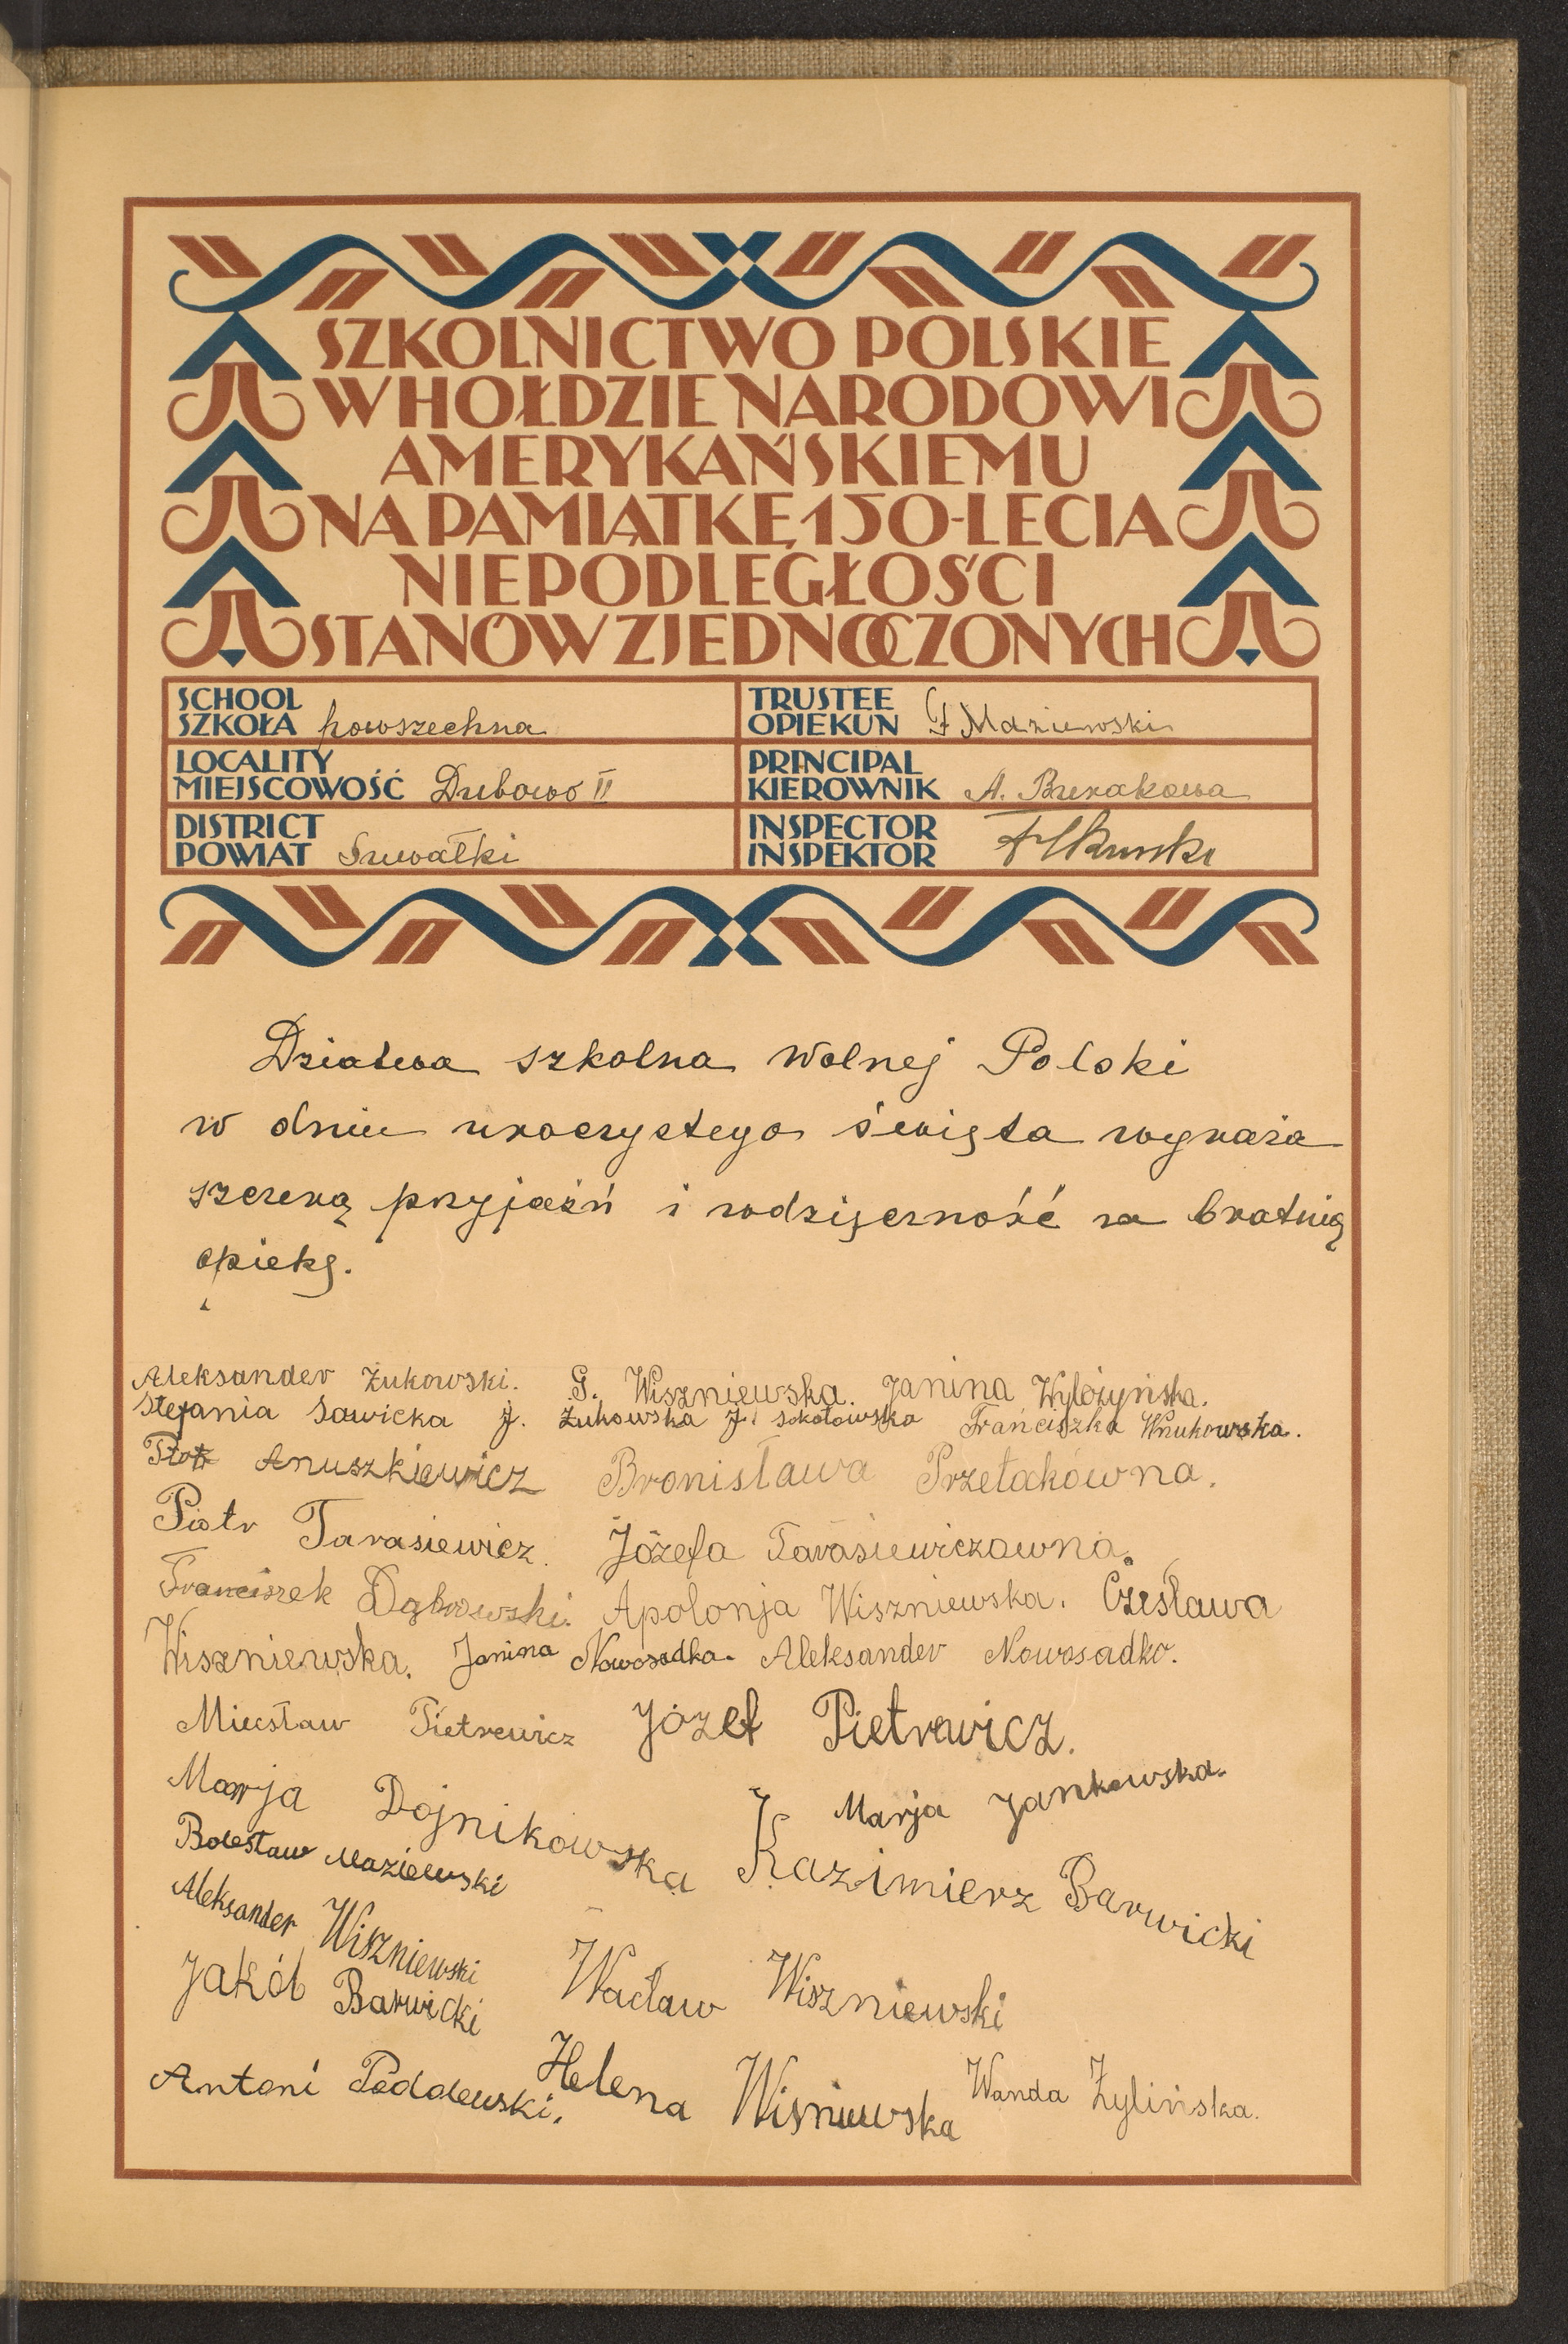 SZKOLNICTWO POLSKIE
W HOŁDZIE NARODOWI
AMERYKAŃSKIEMU
NA PAMIĄTKĘ 150-LECIA
NIEPODLEGŁOŚCI
STANÓW ZJEDNOCZONYCH
SCHOOL
SZKOŁA powszechna
TRUSTEE
OPIEKUN Maziewski
LOCALITY
MIEJSCOWOŚĆ Dubowo II
PRINCIPAL
KIEROWNIK A. Burakowa
DISTRICT
POWIAT Suwałki
INSPECTOR
INSPEKTOR
Dziatwa szkolna Wolnej Polski
w dniu uroczystego święta wyraża
szczerą przyjaźń i wdzięczność za bratnią
opiekę.
Aleksander Żukowski. G. Wiszniewska. Janina Wyłożyńska.
Stefania Sawicka J. Żukowska J. Sokołowska Franciszka Wnukowska.
Piotr Anuszkiewicz Bronisława Przetakówna.
Piotr Tarasiewicz. Józefa Tarasiewiczowna.
Franciszek Dąbrowski. Apolonja Wiszniewska. Czesława
Wiszniewska. Janina Nowosadka. Aleksander Nowosadko.
Miecsław Pietrewicz Józef Pietrewicz.
Marja Dojnikowska Marja Jankowska.
Bolesław Maziewski Kazimierz Barwicki
Aleksander Wiszniewski
Jakób Barwicki Wacław Wiszniewski
Antoni Poddewski. Helena Wiśniewska Wanda Żylińska.